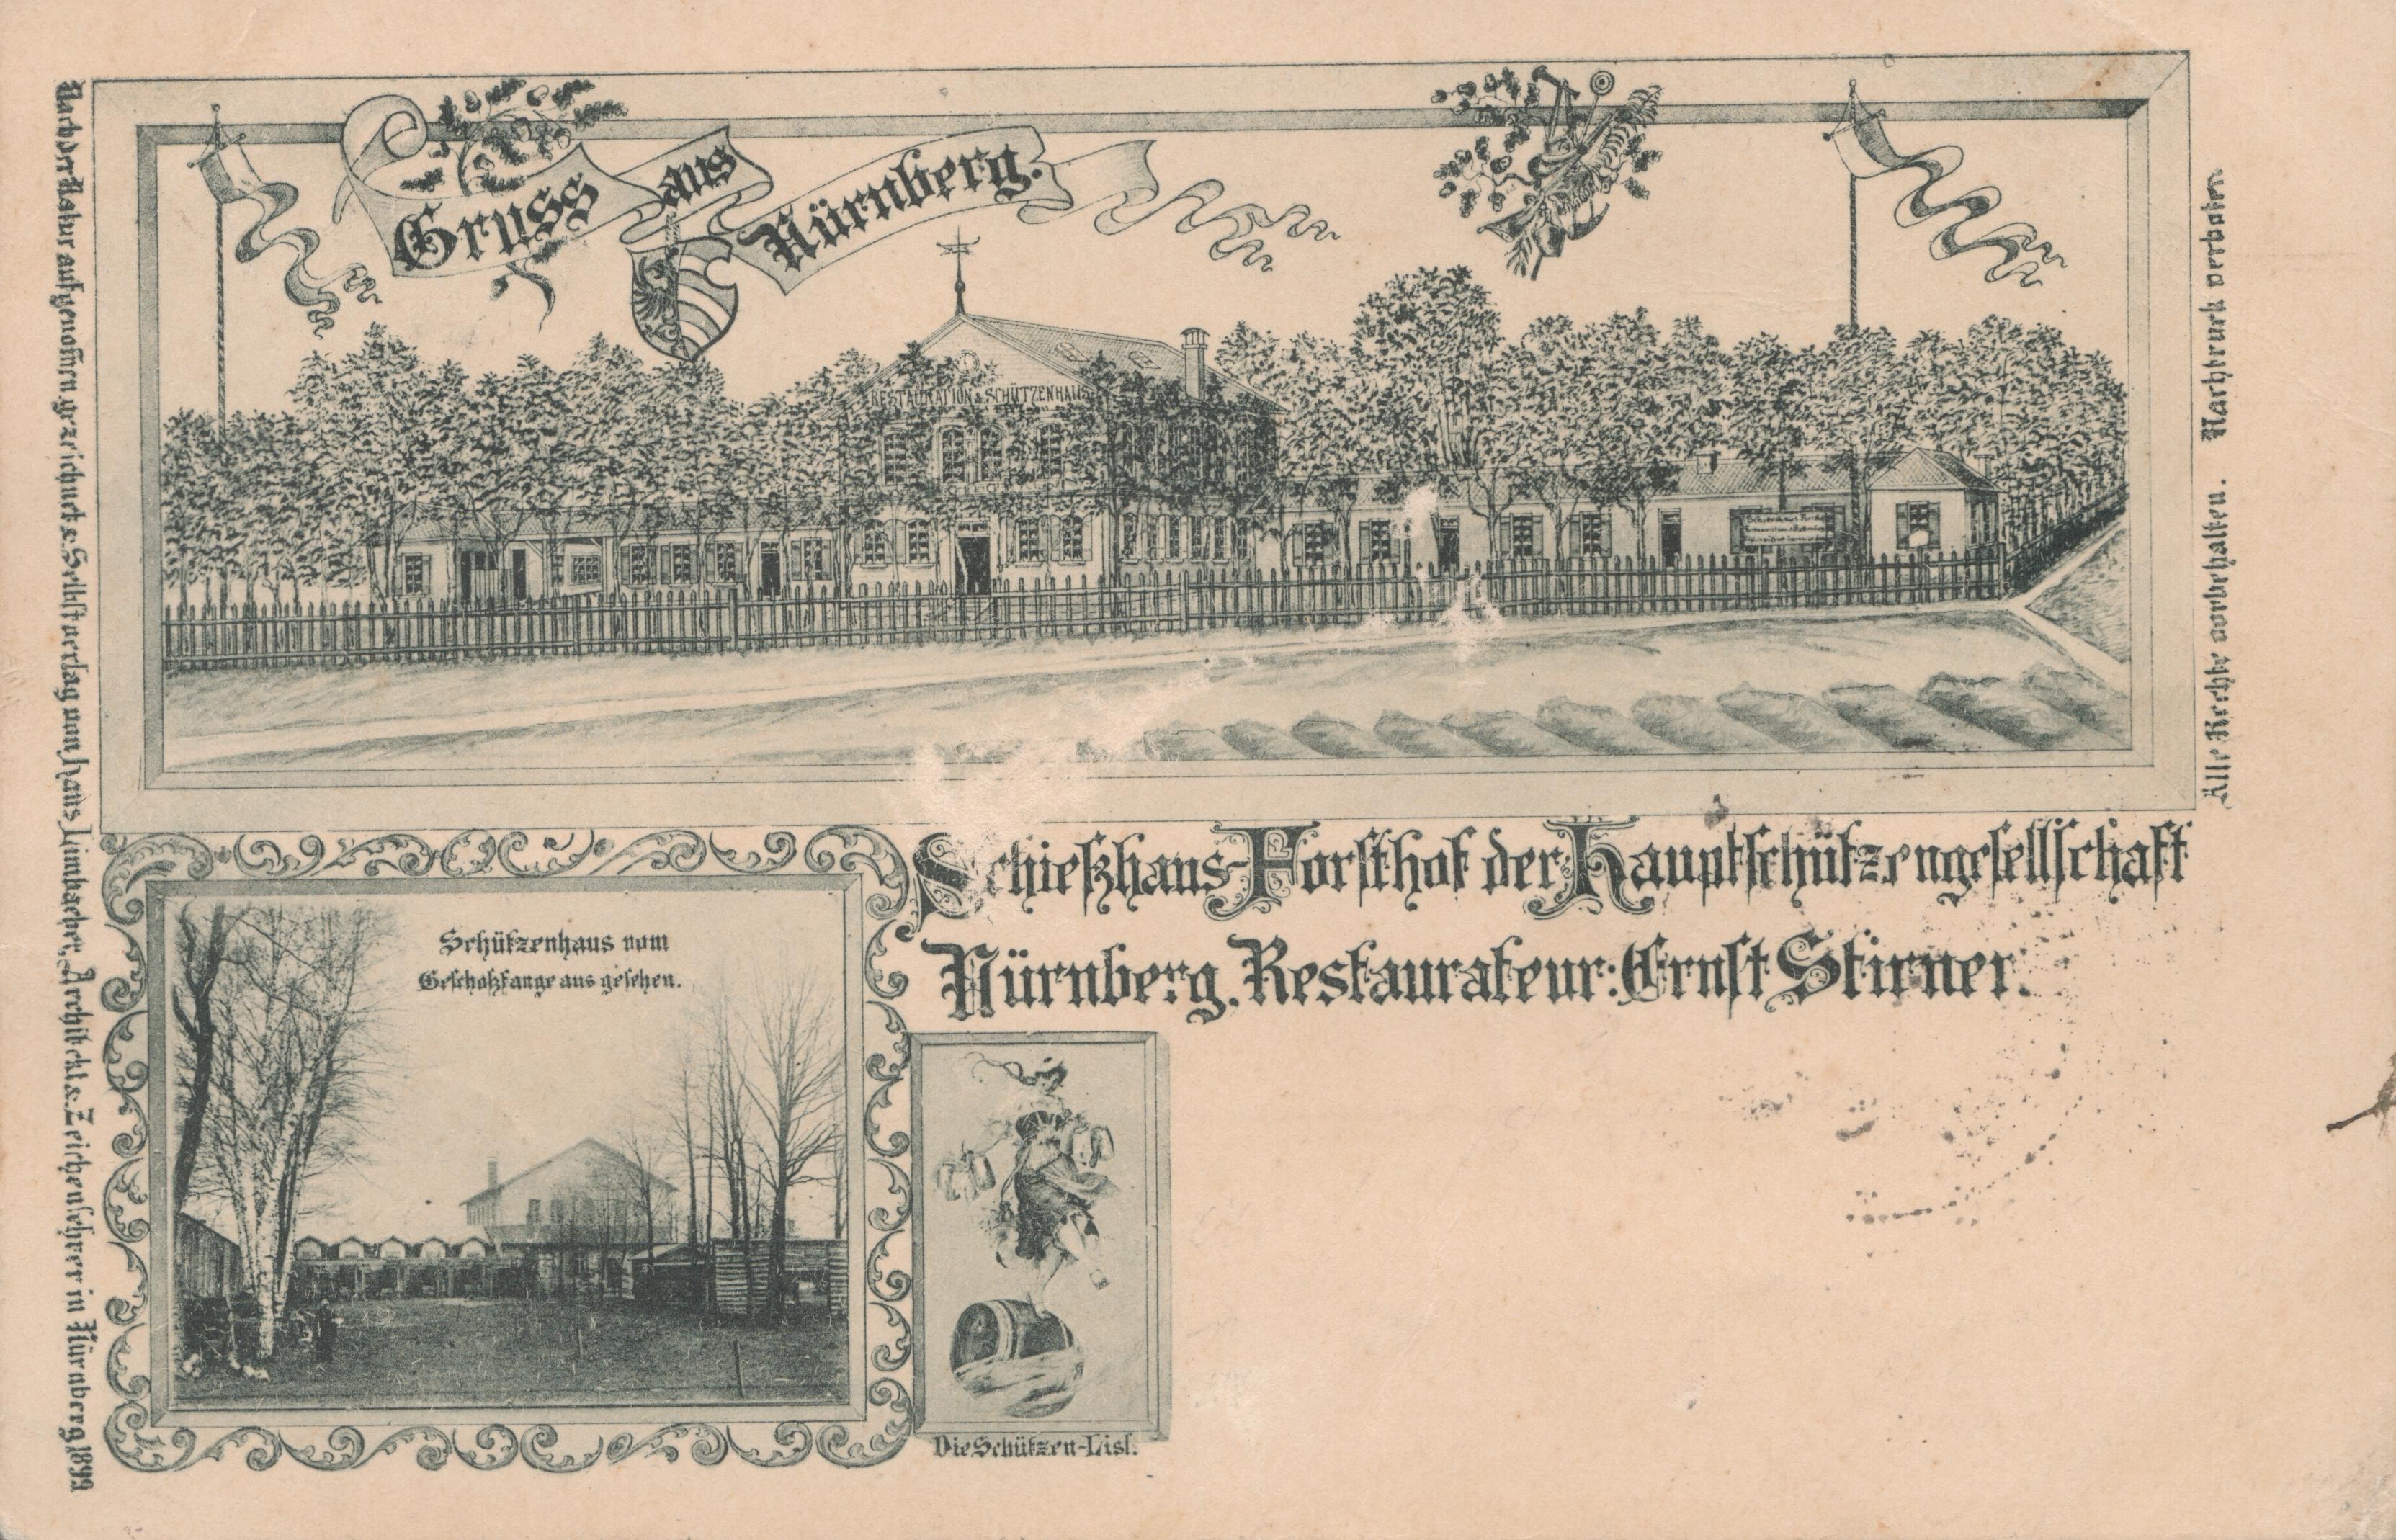 Gruss aus Nürnberg.
RESTAURATION & SCHÜTZENHAUS
Schießhaus-Forsthof der Hauptschützengesellschaft
Nürnberg. Restaurateur: Ernst Stirner.
Schützenhaus vom
Geschoßfange aus gesehen.
Die Schützen-Lisl.
Nach der Natur aufgenom̅en gezeichnet & Selbstverlag von Hans Limbacher, Architekt & Zeichenlehrer in Nürnberg, 1899
Alle Rechte vorbehalten. Nachdruck verboten.